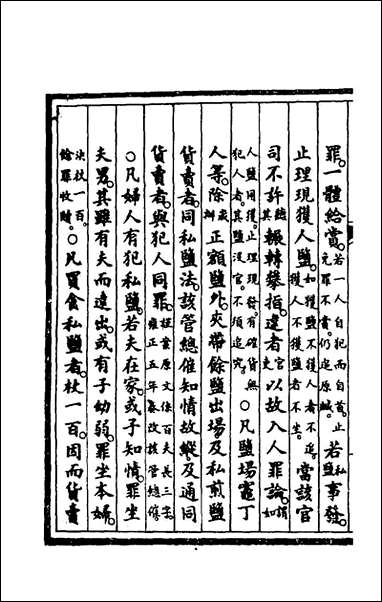 罪。一體給賞。若一人自犯而自首。止免罪不賞。仍追原贓。若私鹽事發。
止理現獲人鹽。如獲鹽不獲人者不追。獲人不獲鹽者不坐。當該官
司不許聽其輾轉攀指。違者官吏以故入人罪論。謂如
人鹽同獲。止理現發。有確貨無犯人者。其鹽沒官。不須追究。○凡鹽場竈丁
人等。除歲辦正額鹽外。夾帶餘鹽出場。及私煎鹽
貨賣者。同私鹽法。該管總催知情故縱。及通同
貨賣者。與犯人同罪。原文係百夫長三字。雍正五年奏改該管總催
○凡婦人有犯私鹽。若夫在家。或子知情。罪坐
夫男。其雖有夫而遠出。或有子幼弱。罪坐本婦。
決杖一百。餘罪收贖。○凡買食私鹽者。杖一百。因而貨賣